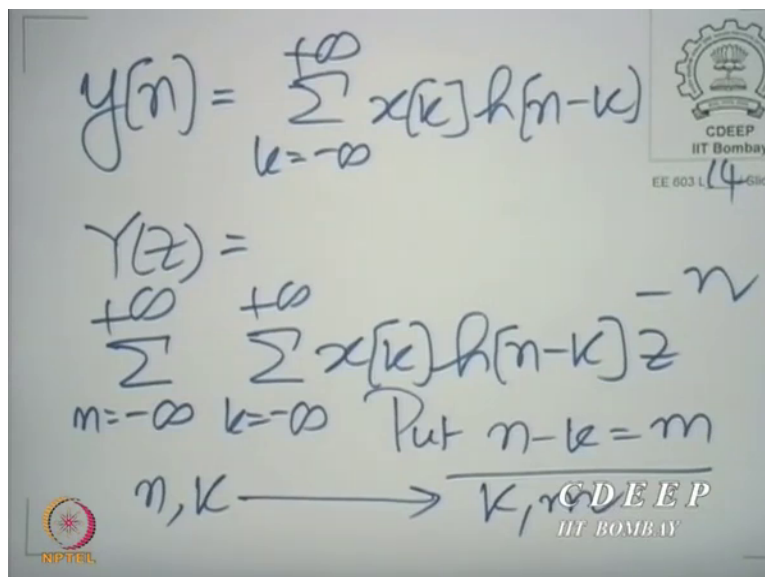 y[n] = +∞ Σ k=-∞ x[k] h[n-k]
CDEEP
IIT Bombay
EE 603 L 14
Y(z) =
+∞ Σ n=-∞ +∞ Σ k=-∞ x[k] h[n-k] z^-n
Put n-k = m
n, k ⟶ k, m
CDEEP
IIT BOMBAY
NPTEL